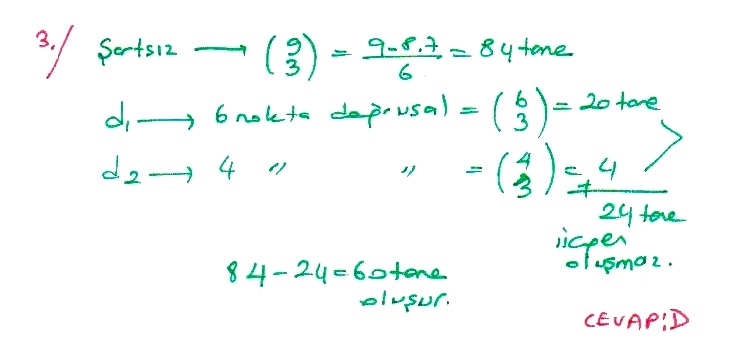 3./ Şartsız → (9 3) = 9.8.7/6 = 84 tane
d₁ → 6 nokta doğrusal = (6 3) = 20 tane
d₂ → 4 " " = (4 3) = 4
+
24 tane
üçgen
oluşmaz.
84-24=60 tane
oluşur.
CEVAP:D